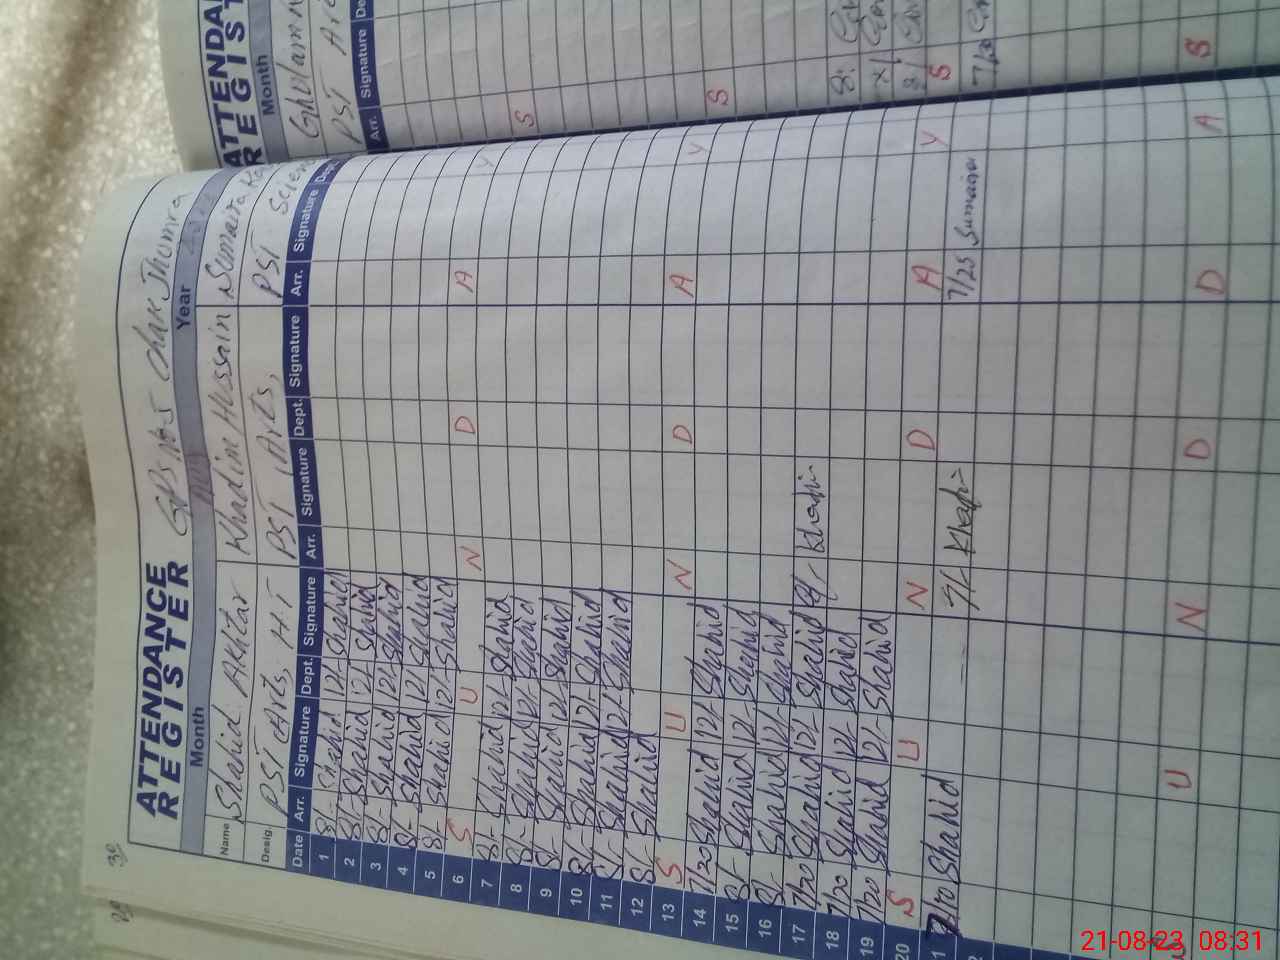 ATTENDANCE
REGISTER
GPS No 5 Chak Jhumra
Month Year
Name Shahid Akhtar Khadim Hussain Sumaira
Desig. PST Arts, H.T PST (Arts, PST Scien
Date Arr. Signature Dept. Signature Arr. Signature Dept. Signature Arr. Signature Dept.
1 8/- Shahid 12/- Shahid
2 8/- Shahid 12/- Shahid
3 8/- Shahid 12/- Shahid
4 8/- Shahid 12/- Shahid
5 8/- Shahid 12/- Shahid
6 S U N D A Y
7 8/- Shahid 12/- Shahid
8 8/- Shahid 12/- Shahid
9 8/- Shahid 12/- Shahid
10 8/- Shahid 12/- Shahid
11 8/- Shahid 12/- Shahid
12 8/- Shahid
13 S U N D A Y
14 7/20 Shahid 12/- Shahid
15 8/- Shahid 12/- Shahid
16 8/- Shahid 12/- Shahid
17 7/20 Shahid 12/- Shahid 8/- Khadi
18 7/20 Shahid 12/- Shahid
19 7/20 Shahid 12/- Shahid
20 S U N D A Y
1 Shahid Khadi 7/25 Sumaira
2
U N D D A
ATTENDA
REGIST
Month
Ghulam
PST
Arr. Signature De
S
S
S
S
21-08-23 08:31